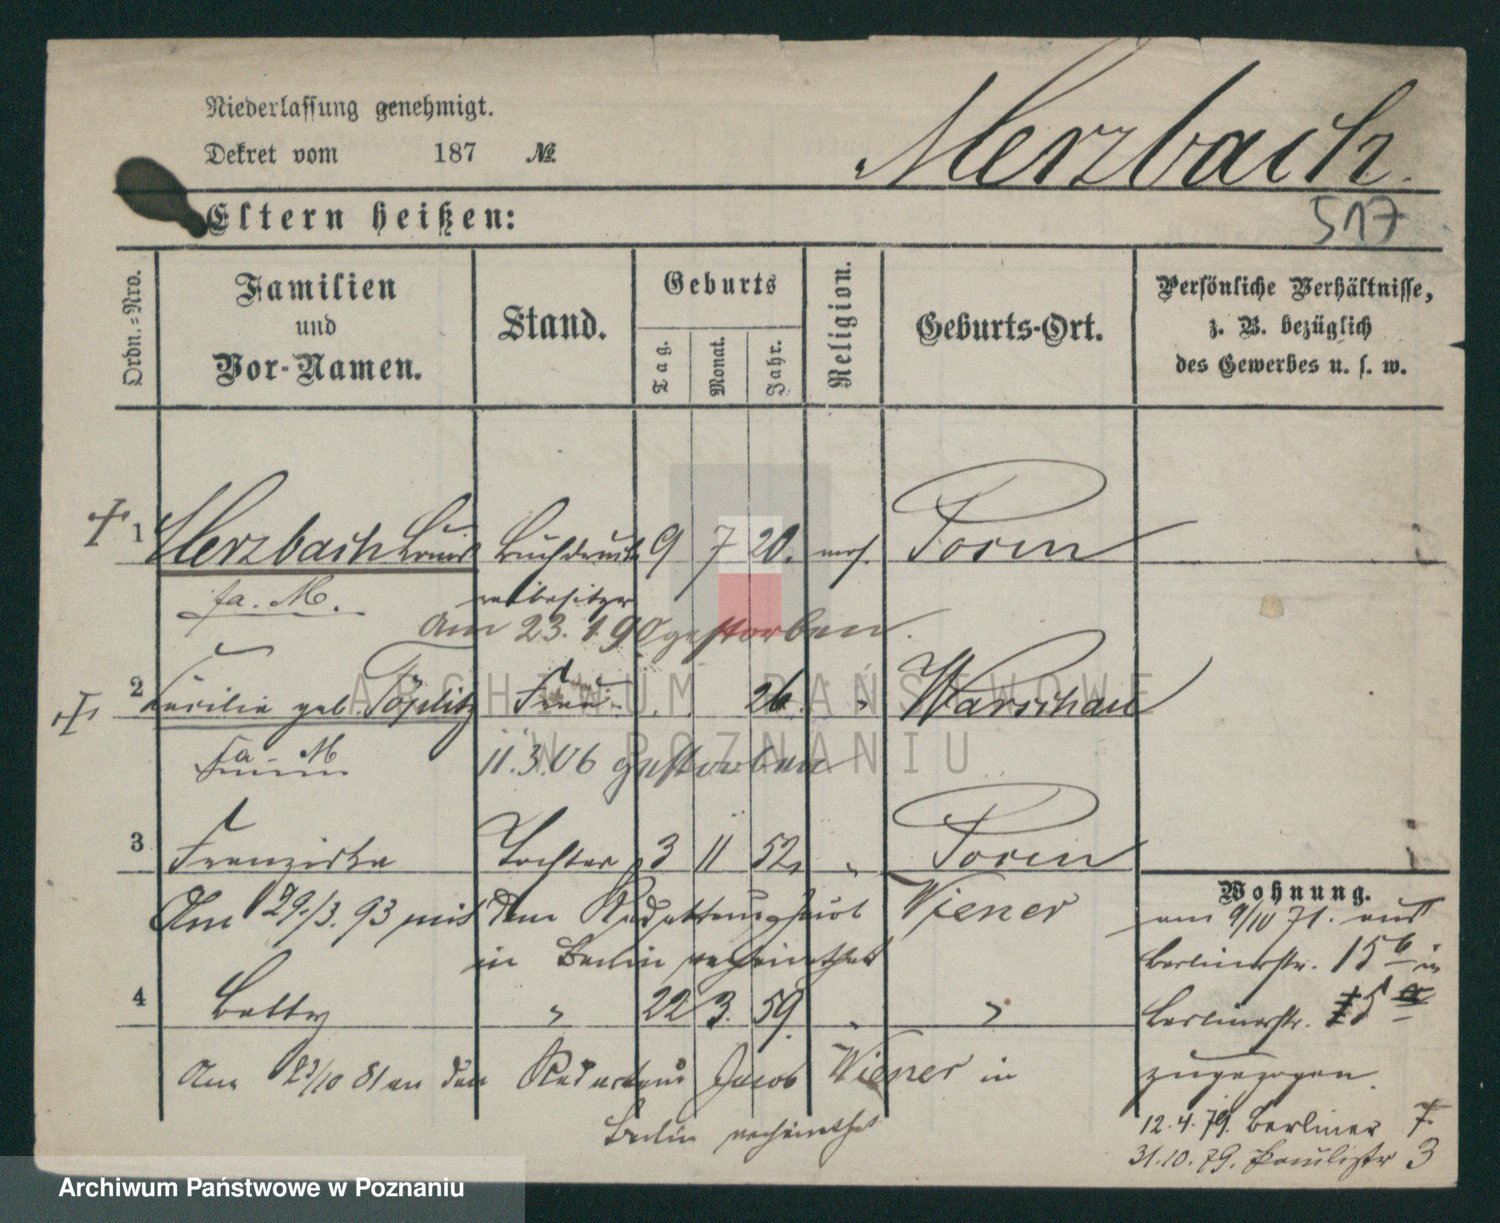 Niederlassung genehmigt.
Dekret vom 187 №
Merzbach.
517
Eltern heißen:
Ordn.-Nro.
Familien
und
Vor-Namen.
Stand.
Geburts
Tag.
Monat.
Jahr.
Religion.
Geburts-Ort.
Persönliche Verhältnisse,
z. B. bezüglich
des Gewerbes u. s. w.
1 Merzbach Louis Buchdrucke 9 7 20. mos. Posen
fa. M. reibesitzer
Am 23. 1. 90 gestorben.
2 Cäcilie geb. Töplitz Frau 26. " Warschau
fa. M. 11.3.06 gestorben
3 Franziska Tochter 3 11 52. " Posen
Am 29./3. 93 mit dem Redakteur Jacob Wiener
in Berlin verheirathet
4 Betty " 22 3. 59. " "
Am 23/10 81 an den Redacteur Jacob Wiener in
Berlin verheirathet
Wohnung.
am 9/10 71. aus
Berlinerstr. 15b in
Berlinerstr. 15a
zugezogen.
12.4.79. Berliner 7
31.10.79. Paulistr 3
ARCHIWUM PAŃSTWOWE
W POZNANIU
Archiwum Państwowe w Poznaniu